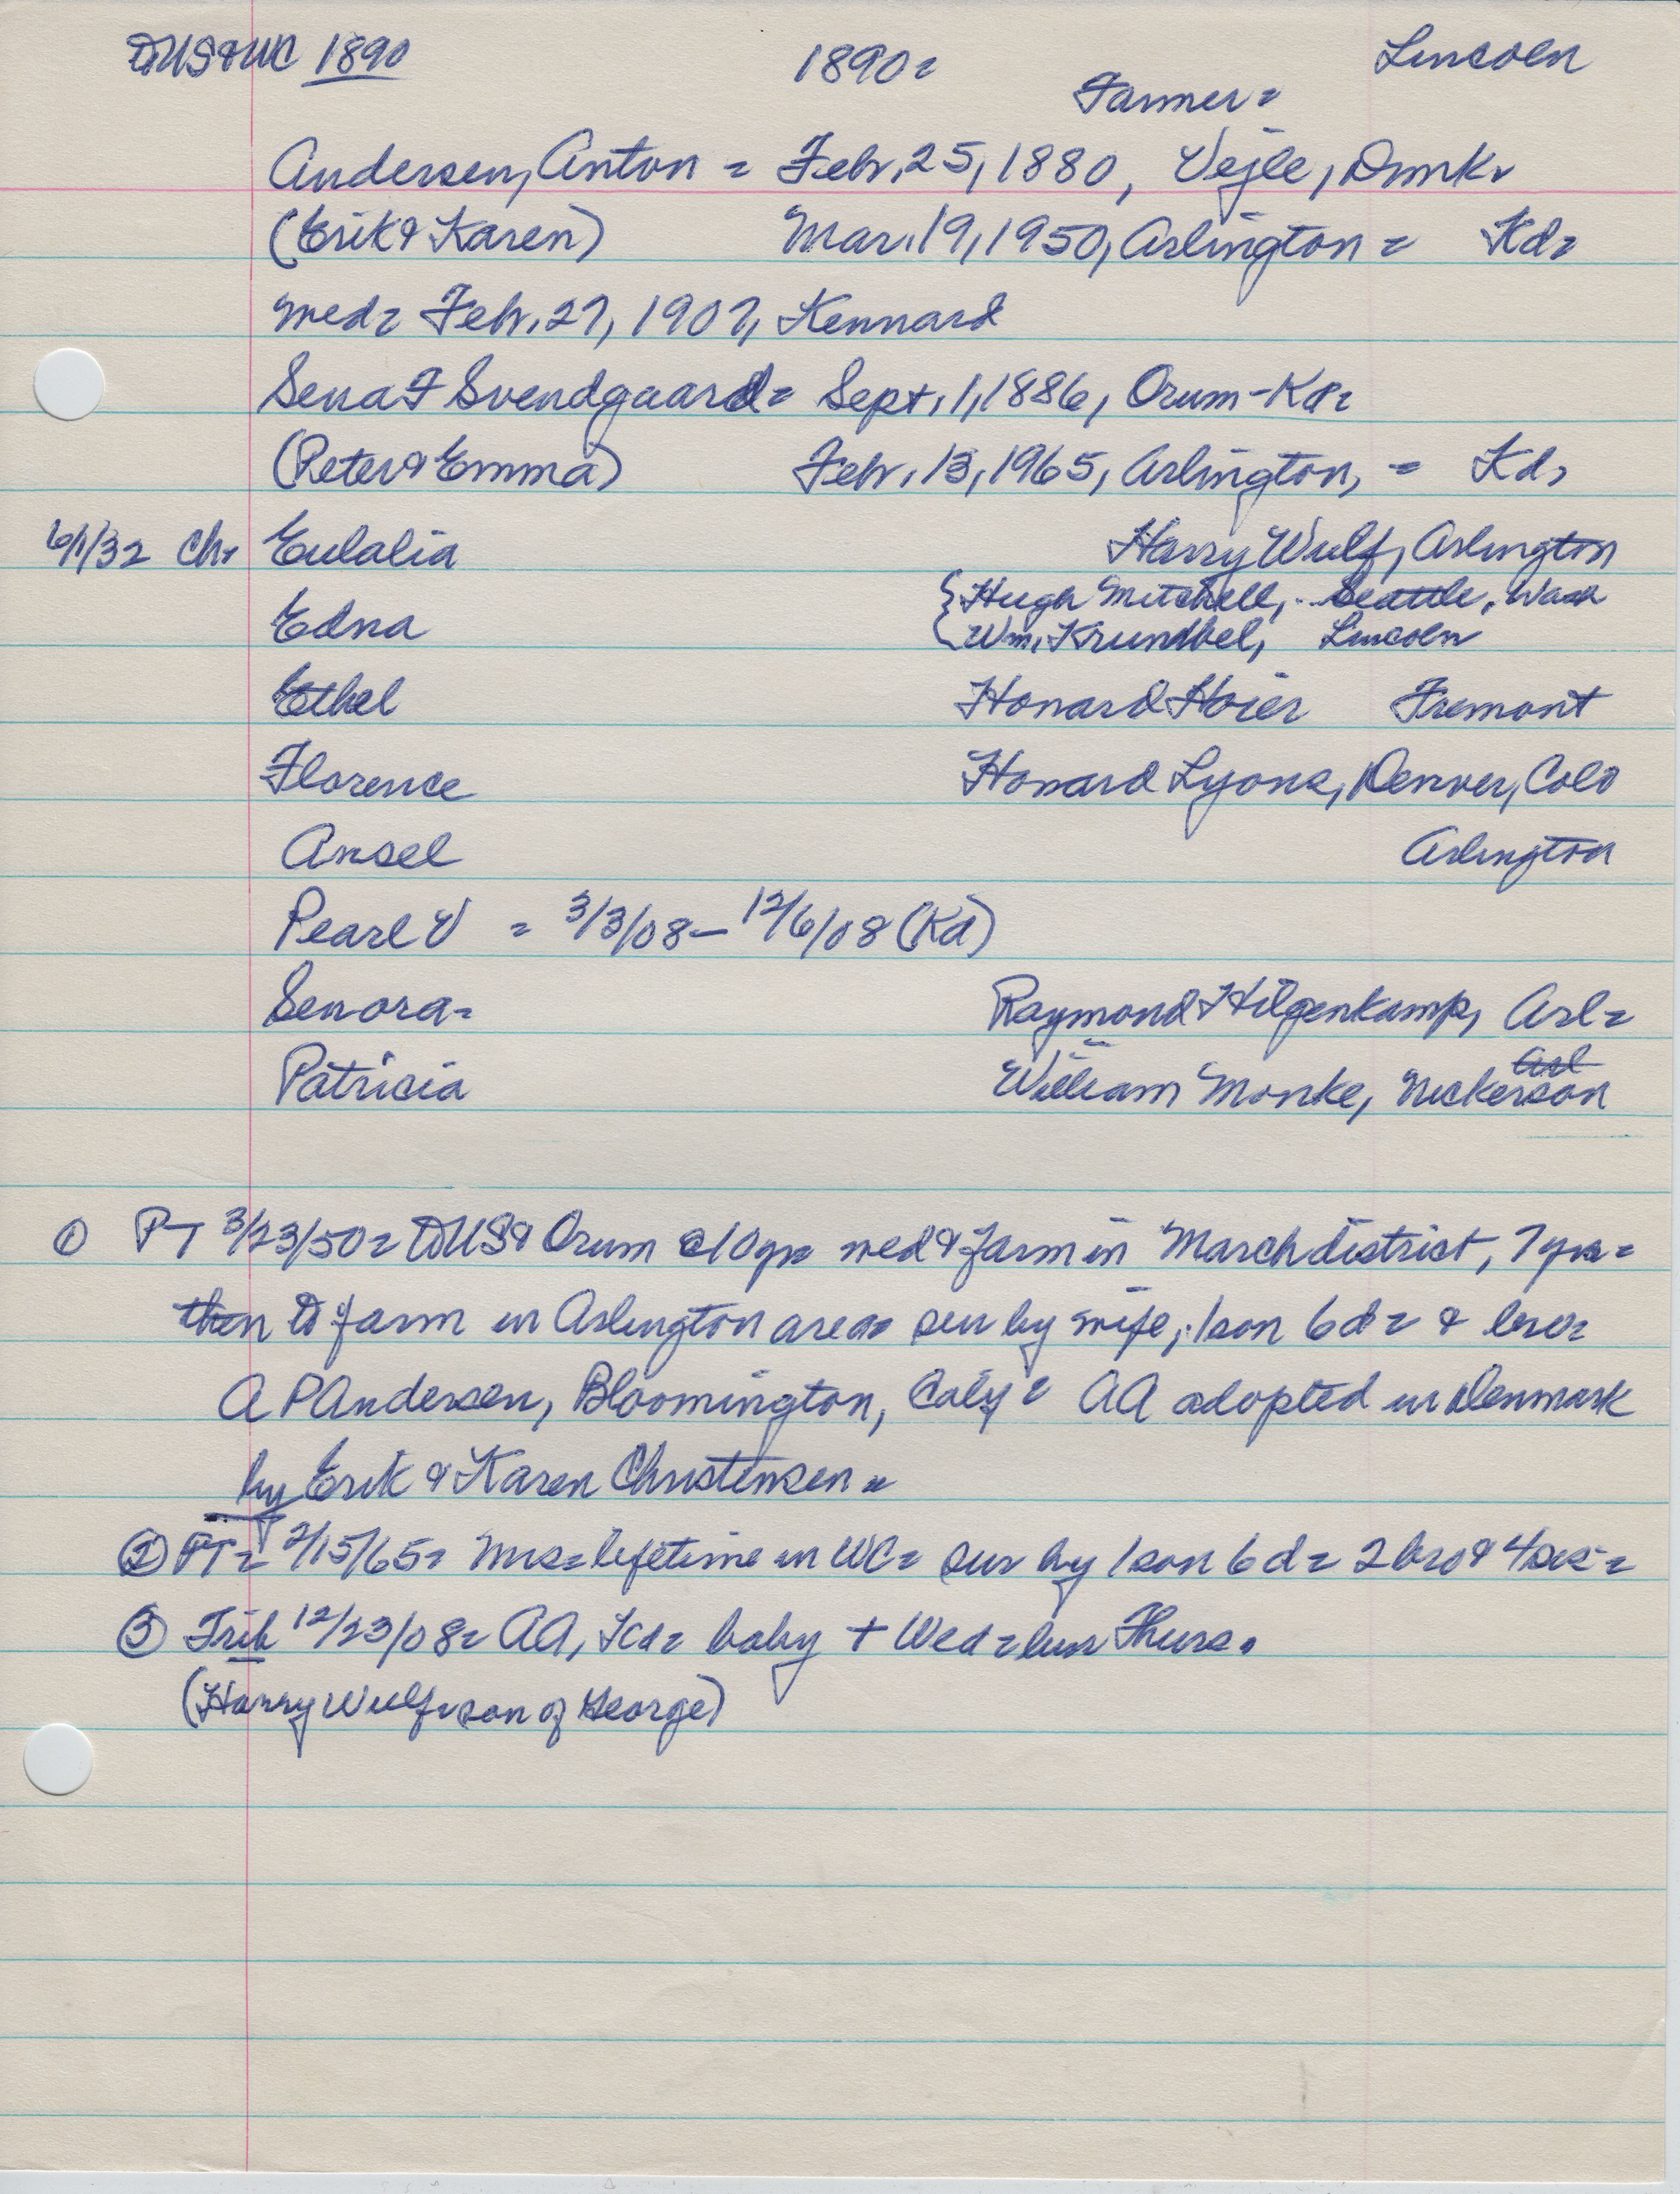 TUS&WC 1890 1890= Lincoln
Farmer=
Andersen, Anton = Feb. 25, 1880, Vejle, Dmk.
(Erik & Karen) Mar. 19, 1950, Arlington = Kd=
wed= Feb. 27, 1907, Kennard
Sena F Svendgaard= Sept. 1, 1886, Orum-Kd=
(Peter & Emma) Feb. 13, 1965, Arlington, = Kd,
6/1/32 Ch. Eulalia Harry Wulf, Arlington
{Hugh Mitchell, Seattle, Wash
Edna {Wm. Krundbel, Lincoln
Ethel Howard Hoier Fremont
Florence Howard Lyons, Denver, Colo
Ansel Arlington
Pearl V = 3/3/08 - 12/6/08 (Kd)
Senora= Raymond Hilgenkamp, Arl=
Arl
Patricia William Monke, Nickerson
① PT 3/23/50= TUS& Orum @10yr= wed & farm in March district, 7 yrs=
then to farm in Arlington area= sur by wife, 1 son 6 d= & bro=
A P Andersen, Bloomington, Calif= AA adopted in Denmark
by Erik & Karen Christensen=
② PT= 2/15/65= Mrs= lifetime in WC= sur by 1 son 6 d= 2 bro & 4 sis=
③ Trib 12/23/08= AA, Kd= baby + Wed= bur Thurs.
(Harry Wulf=son of George)